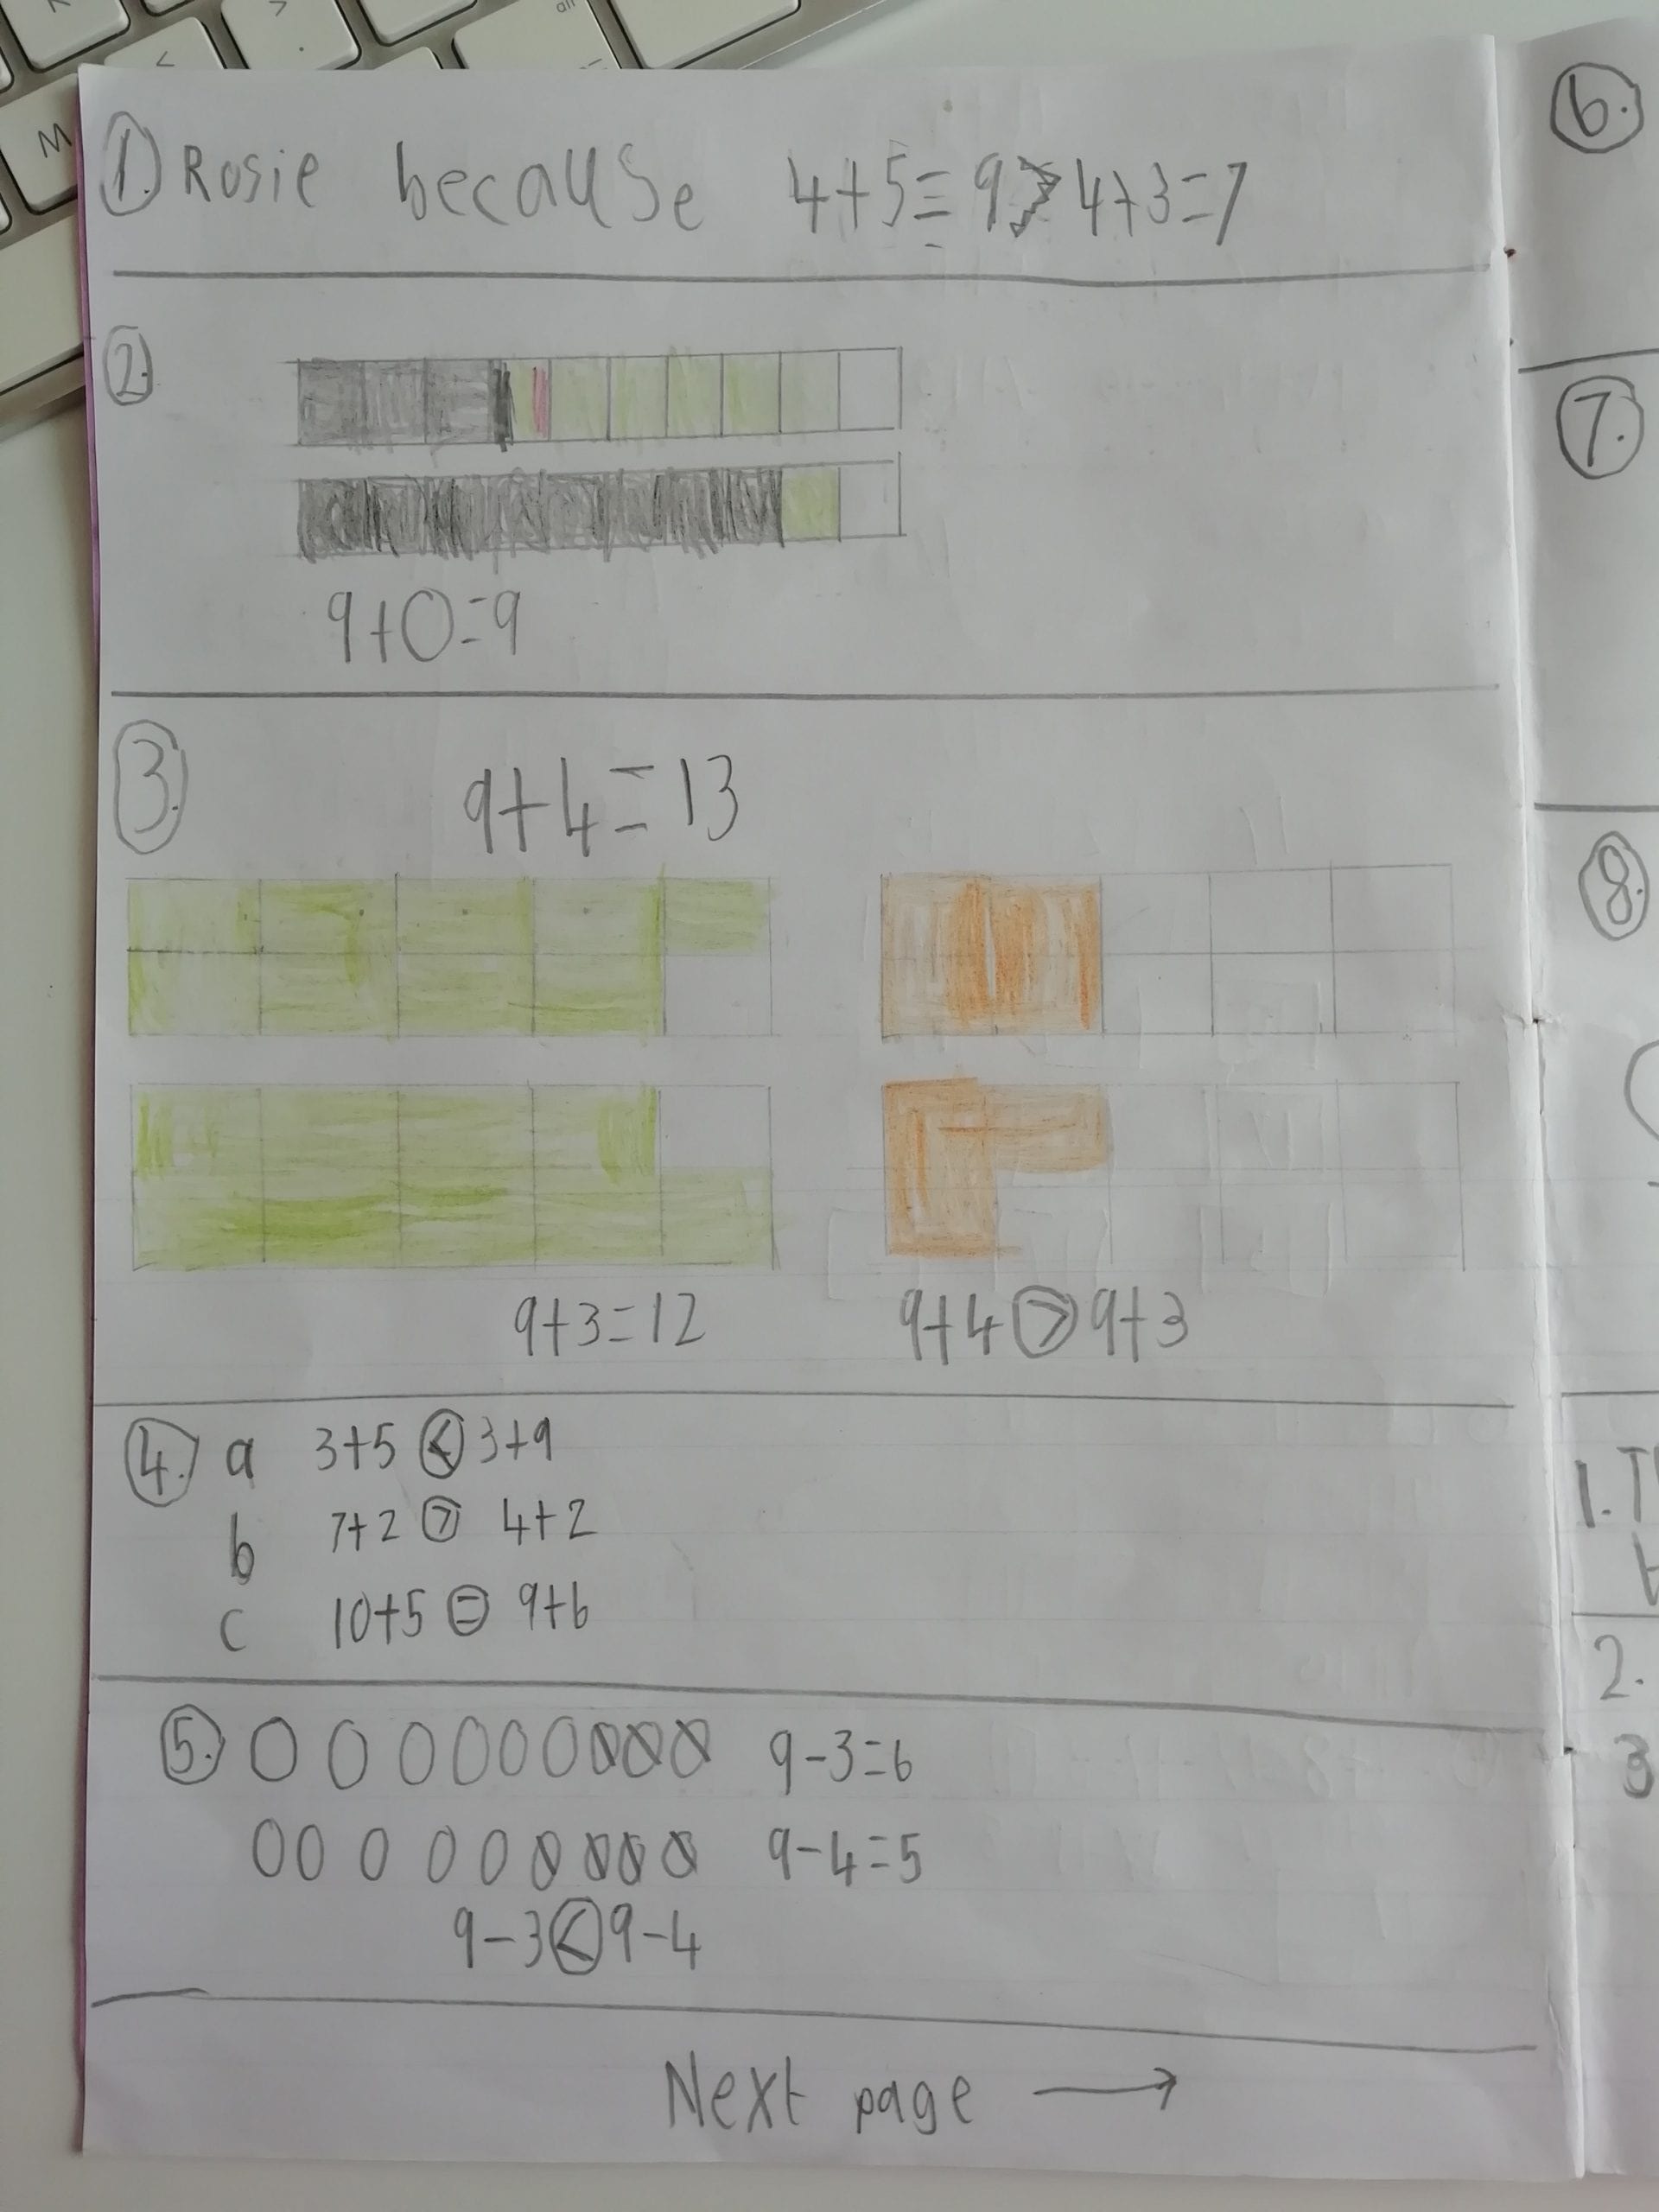 1. Rosie because 4+5=9 > 4+3=7
2.
9+0=9
3.
9+4=13
9+3=12 9+4 > 9+3
4. a 3+5 < 3+9
b 7+2 > 4+2
c 10+5 = 9+6
5. 9-3=6
9-4=5
9-3 < 9-4
Next page →
6.
7.
8.
1. T
2.
3
M